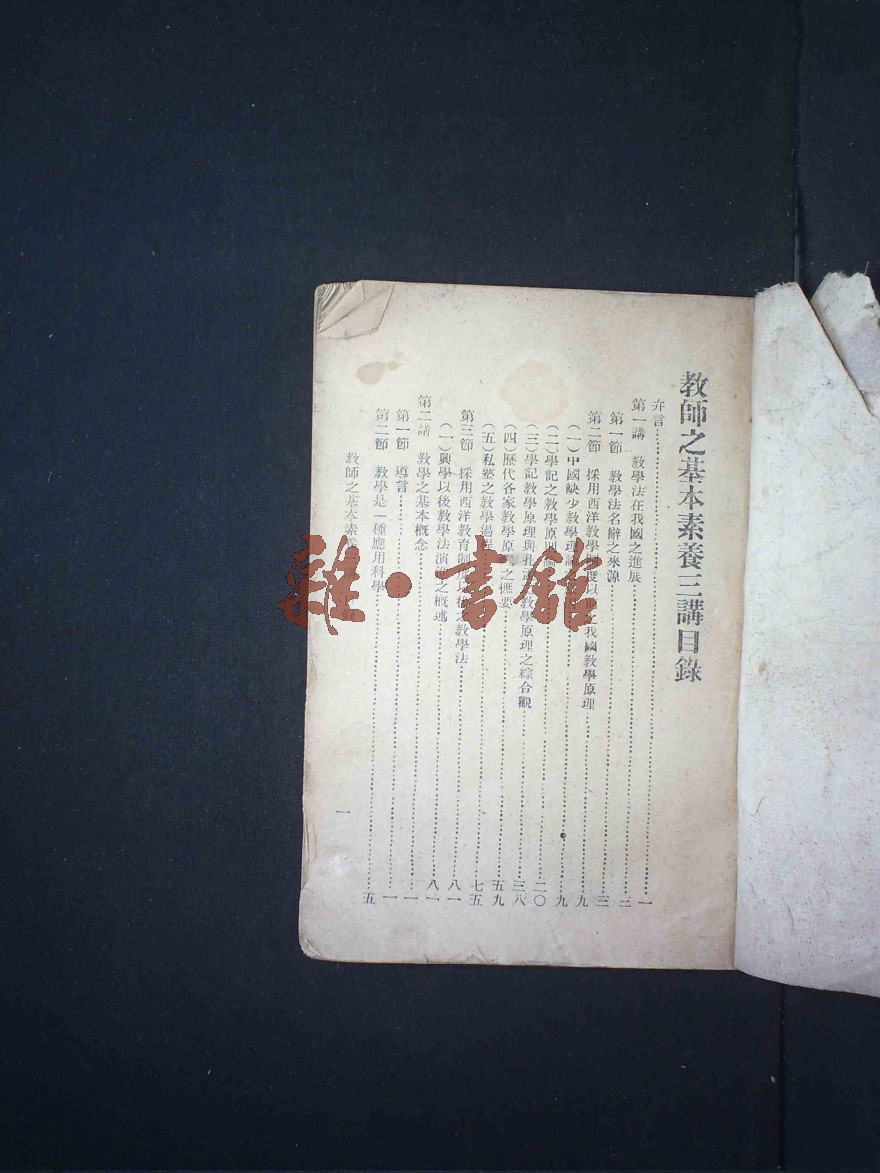 教師之基本素養三講目錄
弁言……一
第一講 教學法在我國之進展……三
第一節 教學法名辭之來源……三
第二節 採用西洋教學制度以前之我國教學原理……九
(一)中國缺少教學理……九
(二)學記之教學原理……二〇
(三)學記教學原理與孔孟教學原理之綜合觀……三八
(四)歷代各家教學原之摭要……五九
(五)私塾之教學過程……七五
第三節 採用西洋教育制度以後之教學法……八一
(一)興學以後教學法演進之概述……八一
第二講 教學之基本概念……一
第一節 導言……一
第二節 教學是一種應用科學……五
教師之基本素養
一
雜·書館